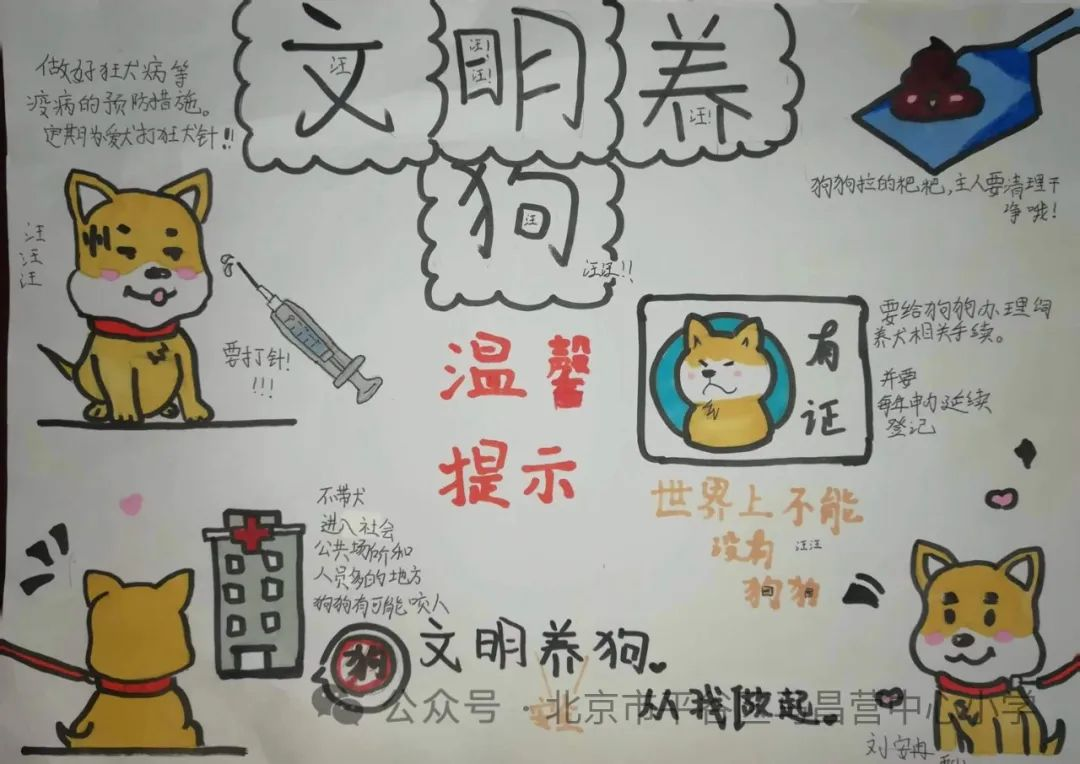 文明养
汪
汪!
汪!
汪!
狗
汪
汪汪!!
做好狂犬病等
疫病的预防措施。
定期为爱犬打狂犬针!!
狗狗拉的粑粑,主人要清理干
净哦!
汪
汪
汪
要打针!
!!!
温馨
提示
有
证
要给狗狗办理饲
养犬相关手续。
并要
每年申办延续
登记
世界上不能
没有
汪汪
狗狗
不带犬
进入社会
公共场所和
人员多的地方
狗狗有可能咬人
狗
文明养狗。
从我做起。
公众号·北京市平谷
昌营中心小学
刘安冉